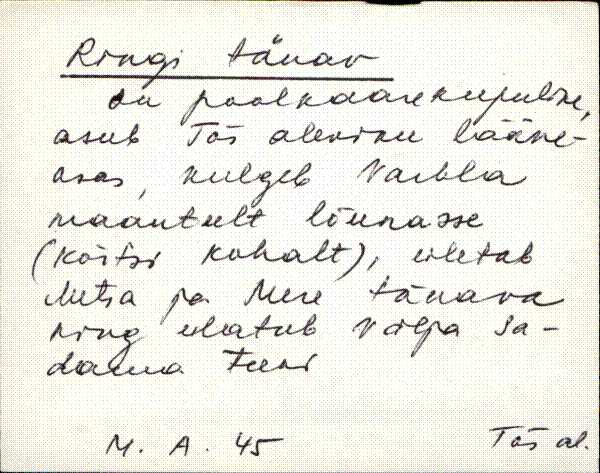 Ringi tänav
on poolkaarekujuline,
asub Tõs aleviku lääne-
osas, kulgeb Varbla
maanteelt lõunasse
(Kõitsi kohalt), ületab
Metsa ja Mere tänava
ning ulatub välja Sa-
dama teeni
M. A. 45 Tõs al.